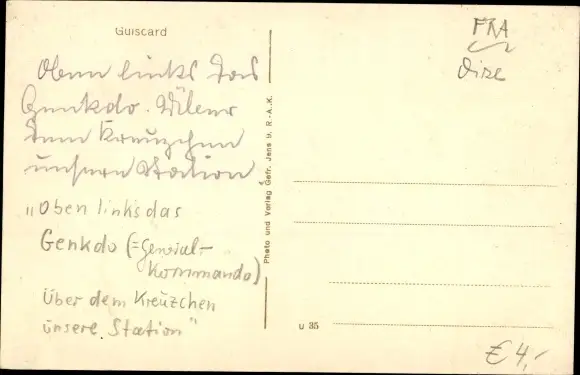 Guiscard
Oben links das
Genkdo. Über
dem Kreuzchen
unsere Station
"Oben links das
Genkdo (=General-
kommando)
über dem Kreuzchen
unsere Station"
Photo und Verlag Gefr. Jens U. R.-A.K.
FRA
Oise
u 35
€ 4,-